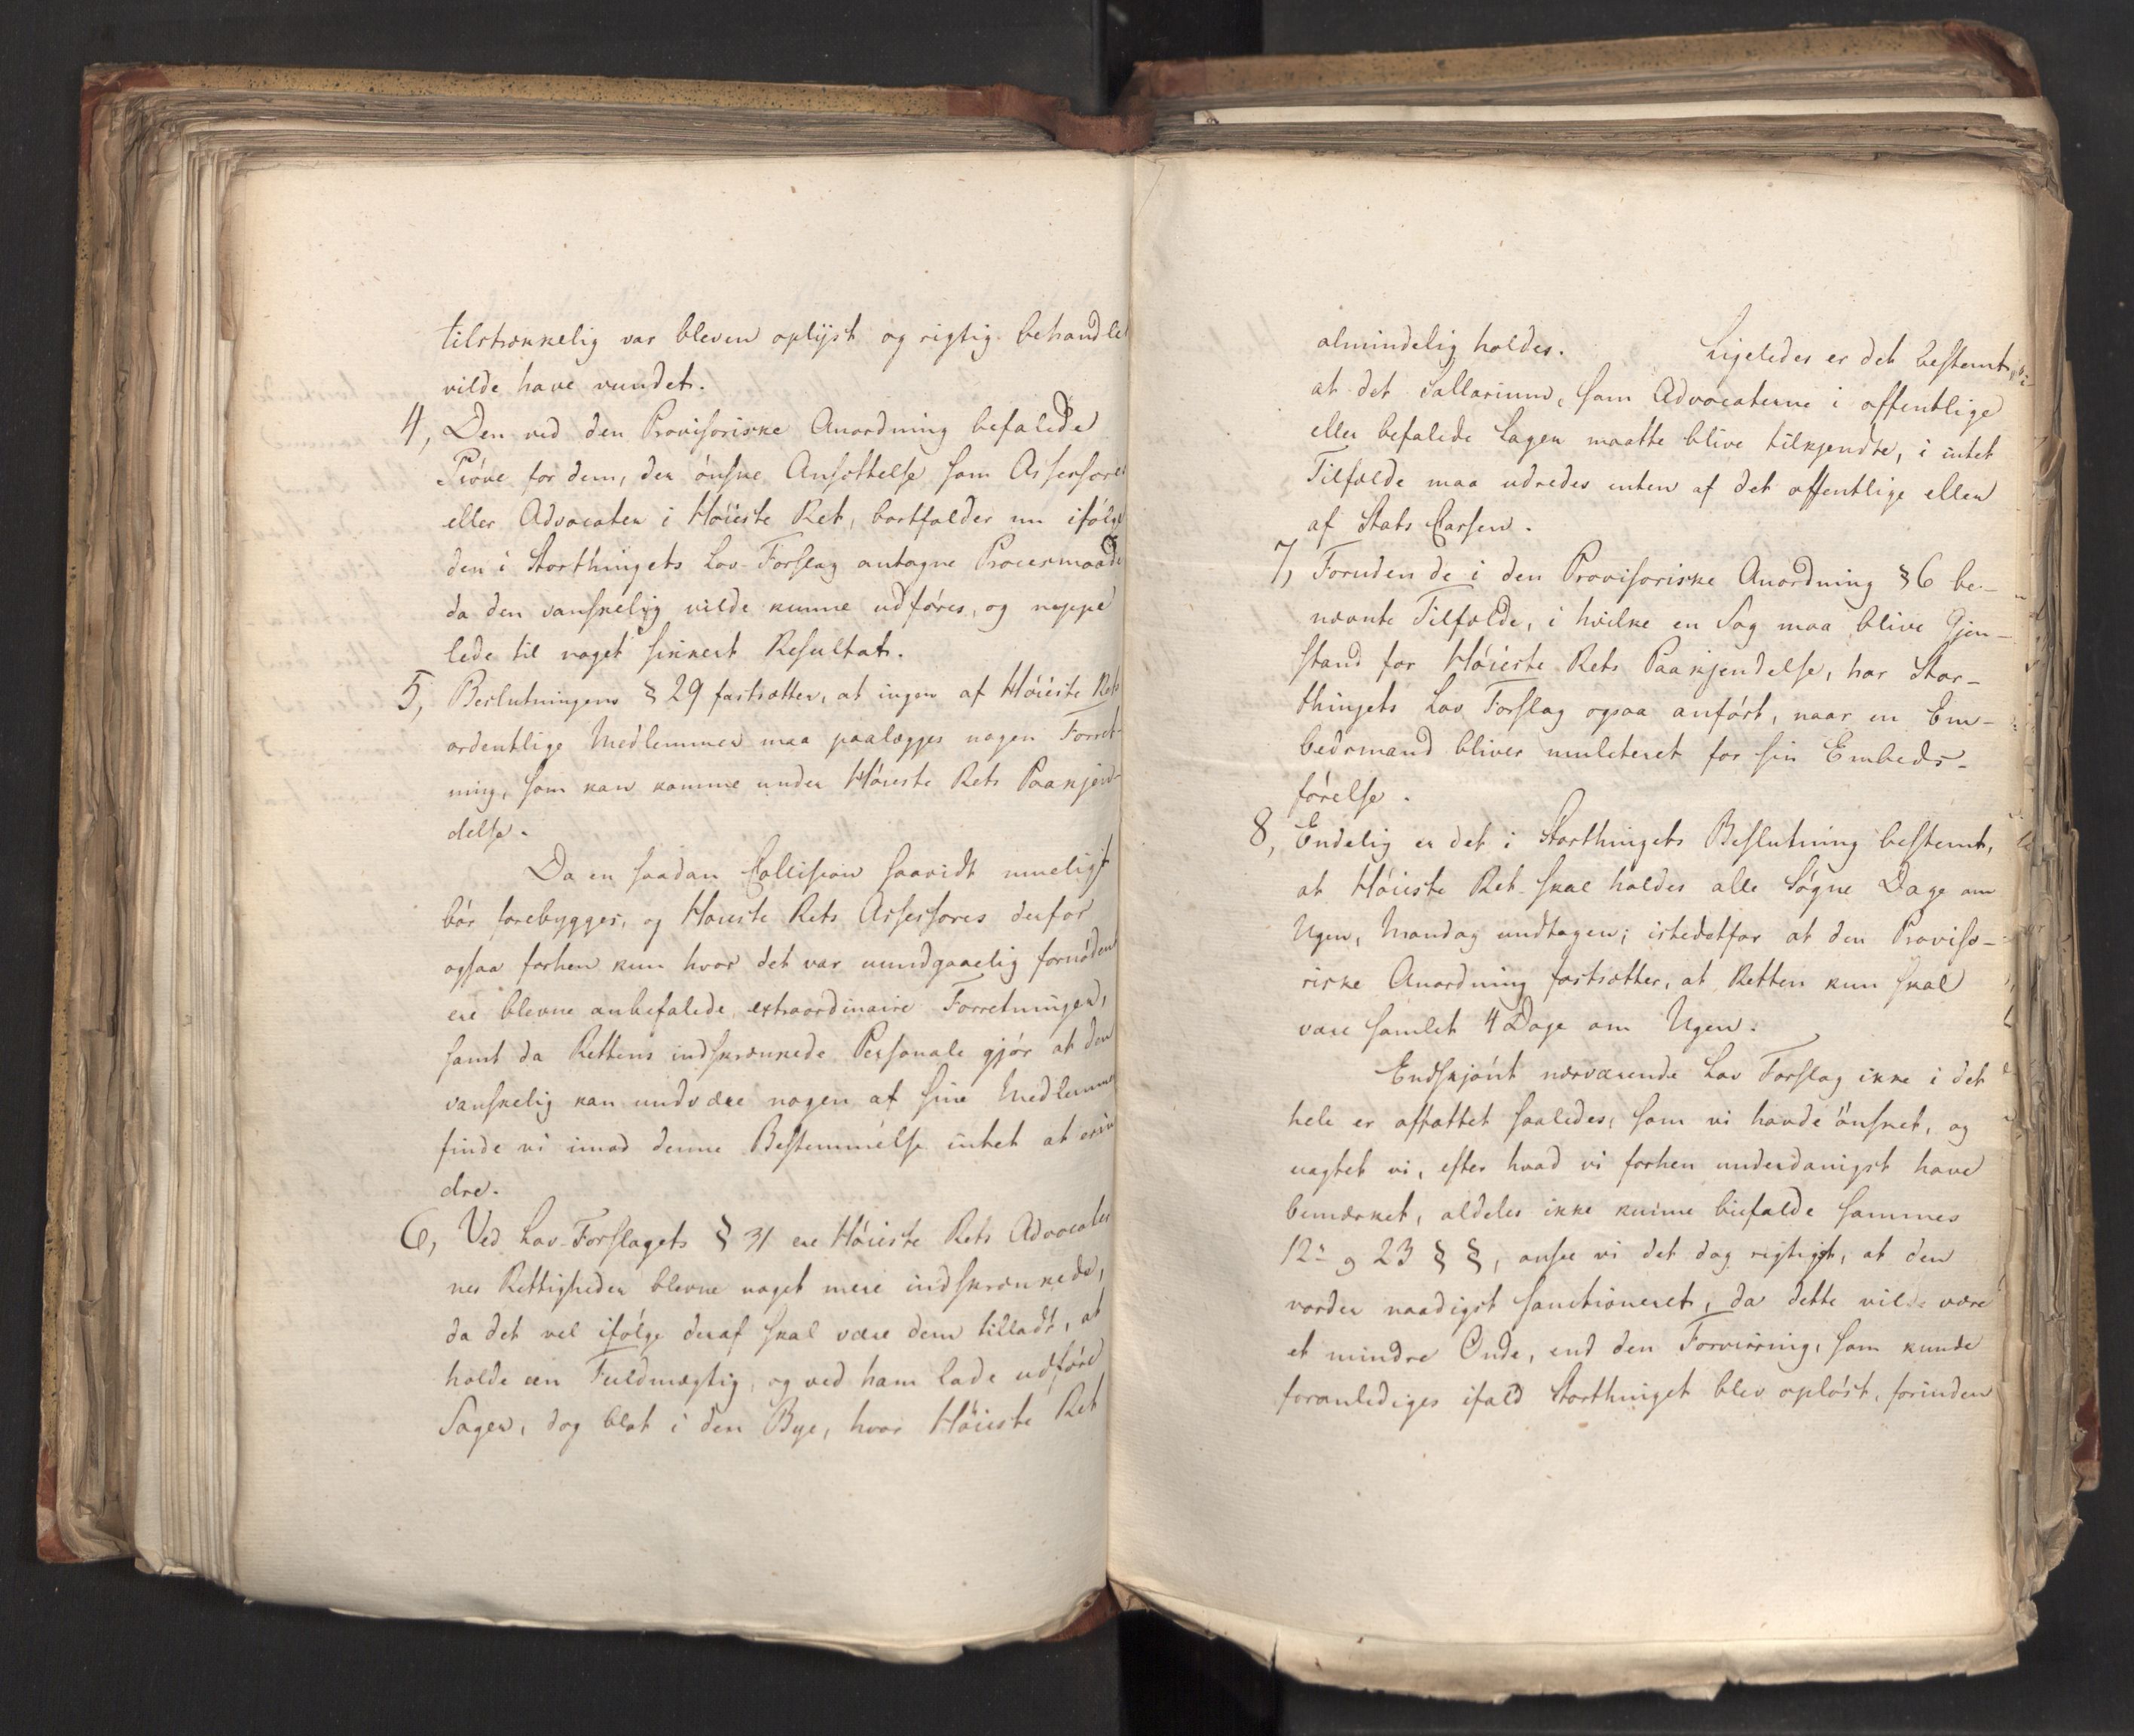 tilstrækkelig var bleven oplyst og rigtig behandlet
vilde have vundet.
4, Den ved den Provisoriske Anordning befalede
Prøve for dem, der ønske Ansættelse som Assessorer
eller Advocater i Høieste Ret, bortfalder nu ifølge
den i Storthingets Lov-Forslag antagne Procesmaade
da den vanskelig vilde kunne udføres, og neppe
lede til noget sikkert Resultat.
5, Beslutningens § 29 fastsætter, at ingen af Høieste Rets
ordentlige Medlemmer maa paalægges nogen Forret-
ning, som kan komme under Høieste Rets Paakjen-
delse.
Da en saadan Collision saavidt mueligt
bør forebygges, og Høieste Rets Assessores derfor
ogsaa forhen kun hvor det var uundgaaelig fornødent
ere blevne anbefalede extraordinaire Forretninger,
samt da Rettens indskrænkede Personale gjør at den
vanskelig kan undvære nogen af sine Medlemmer
finde vi imod denne Bestemmelse intet at erin
dre.
6, Ved Lov-Forslagets § 31 ere Høieste Rets Advocater
nes Rettigheder blevne noget mere indskrænkede,
da det vel ifølge deraf skal være dem tilladt, at
holde een Fuldmægtig, og ved ham lade udføre
Sager, dog blot i den Bye, hvor Høieste Ret
almindelig holdes. Ligeledes er det bestemt
at det Sallarium, som Advocaterne i offentlige
eller befalede Sager maatte blive tilkjendte, i intet
Tilfælde maa udredes enten af det offentlige eller
af Stats Cassen.
7, Foruden de i den Provisoriske Anordning § 6 be-
nævnte Tilfælde, i hvilke en Sag maa blive Gjen-
stand for Høieste Rets Paakjendelse, har Stor-
thingets Lov Forslag ogsaa anført, naar en Em-
bedsmand bliver mulcteret for sin Embeds-
førelse.
8, Endelig er det i Storthingets Beslutning bestemt,
at Høieste Ret skal holdes alle Søgne Dage om
Ugen, Mandag undtagen; istedetfor at den Proviso-
riske Anordning fastsætter, at Retten kun skal
være samlet 4 Dage om Ugen.
Endskjønt nærværende Lov Forslag ikke i det
hele er affattet saaledes, som vi havde ønsket, og
uagtet vi, efter hvad vi forhen underdanigst have
bemærket, aldeles ikke kunne biefalde sammes
12te og 23 § §, ansee vi det dog rigtigst, at den
vorder naadigst sanctioneret, da dette vilde være
et mindre Onde, end den Forvirring, som kunde
foranlediges ifald Storthinget blev opløst, forinden